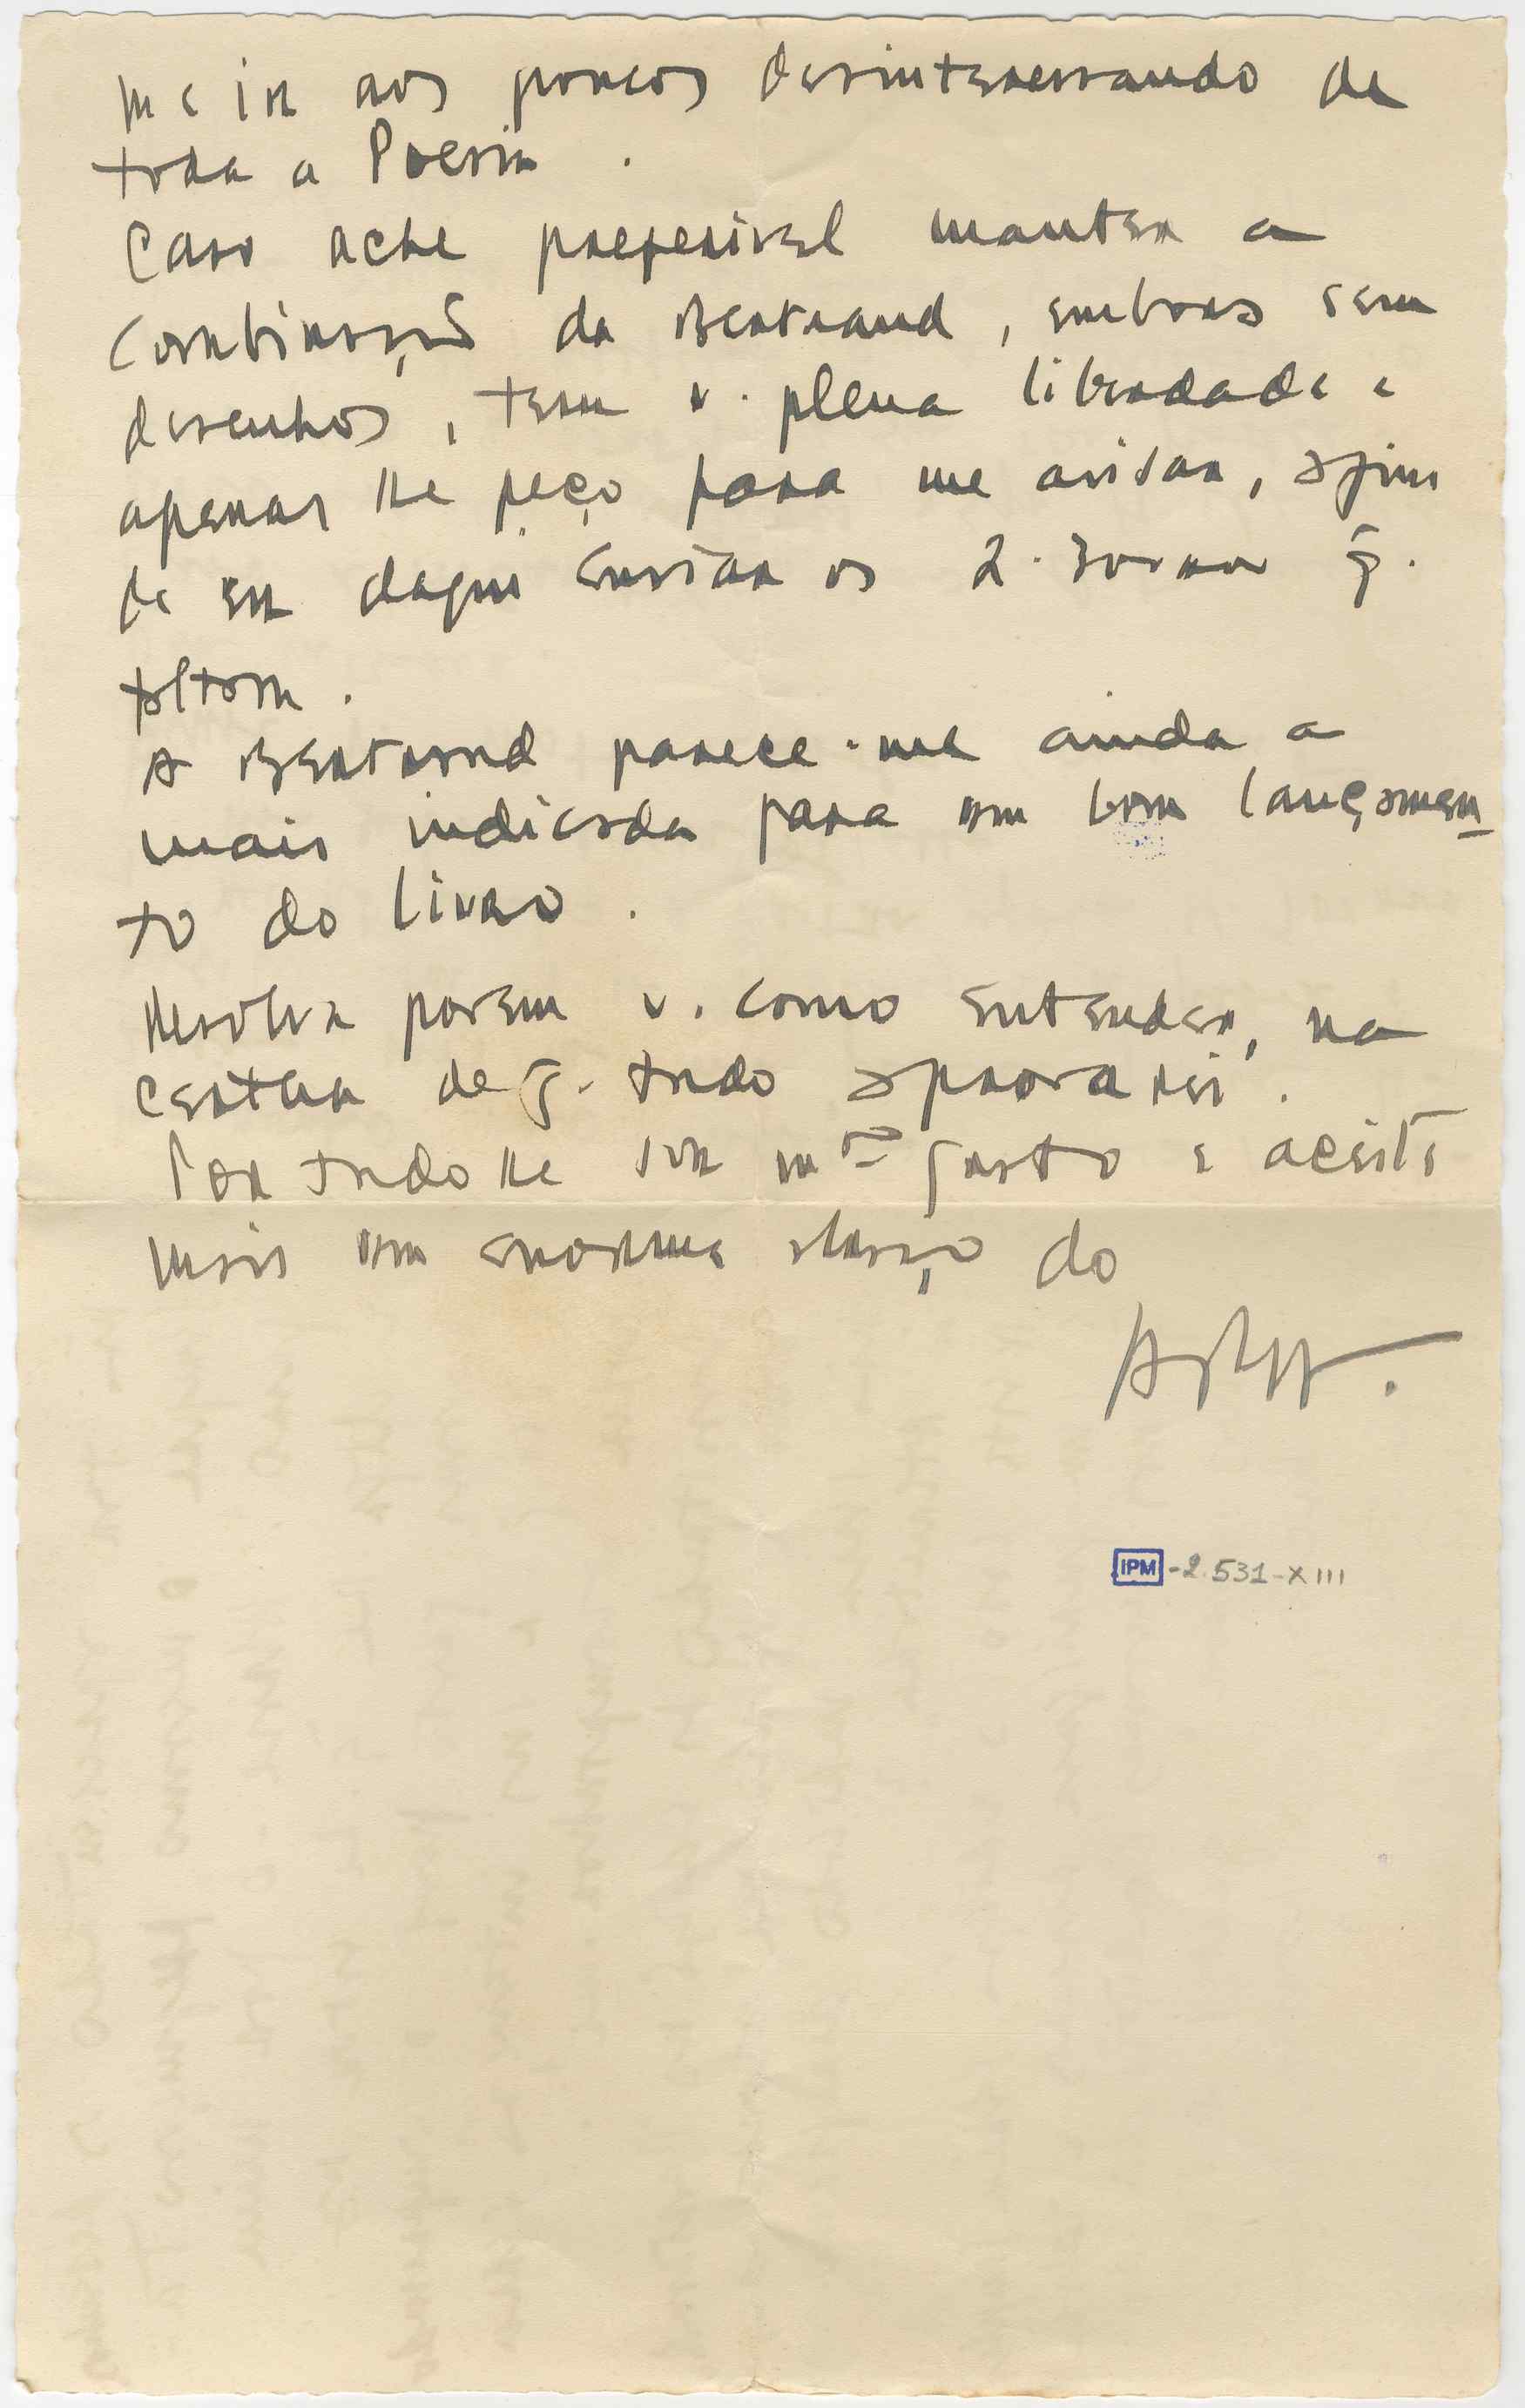 me ir aos poucos desinteressando de
toda a Poesia.
Caso ache preferivel manter a
combinação da Bertrand, embora sem
desenhos, tem v. plena liberdade e
apenas lhe peço para me avisar, afim
de eu daqui enviar os 2. q̃.
faltam.
A Bertrand parece-me ainda a
mais indicada para um bom lançamen
to do livro.
Resolva porem v. como entender, na
certeza de q̃. tudo aprovarei.
Por tudo lhe sou mto grato e aceite
mais um enorme abraço do
IPM - 2.531-XIII